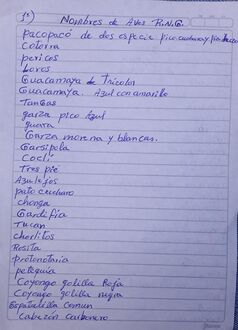 1º)
Nombres de Aves R.N.C.
pacopacó de dos especie pico
Cotorra
pericos
Loros
Guacamaya de Tricolor
Guacamaya. Azul con amarillo
Tangas
garza pico Azul
guara
Garza morena y blancas.
Garsipola
Coclí
Tres pié
Azulejos
pato cuchara
chonga
Gardifia
Tucan
chorlitos
Rosita
protonotaria
peteguía
Coyongo golilla Roja
Coyongo golilla negra
Espatulilla Comun
Cabezón carbonero